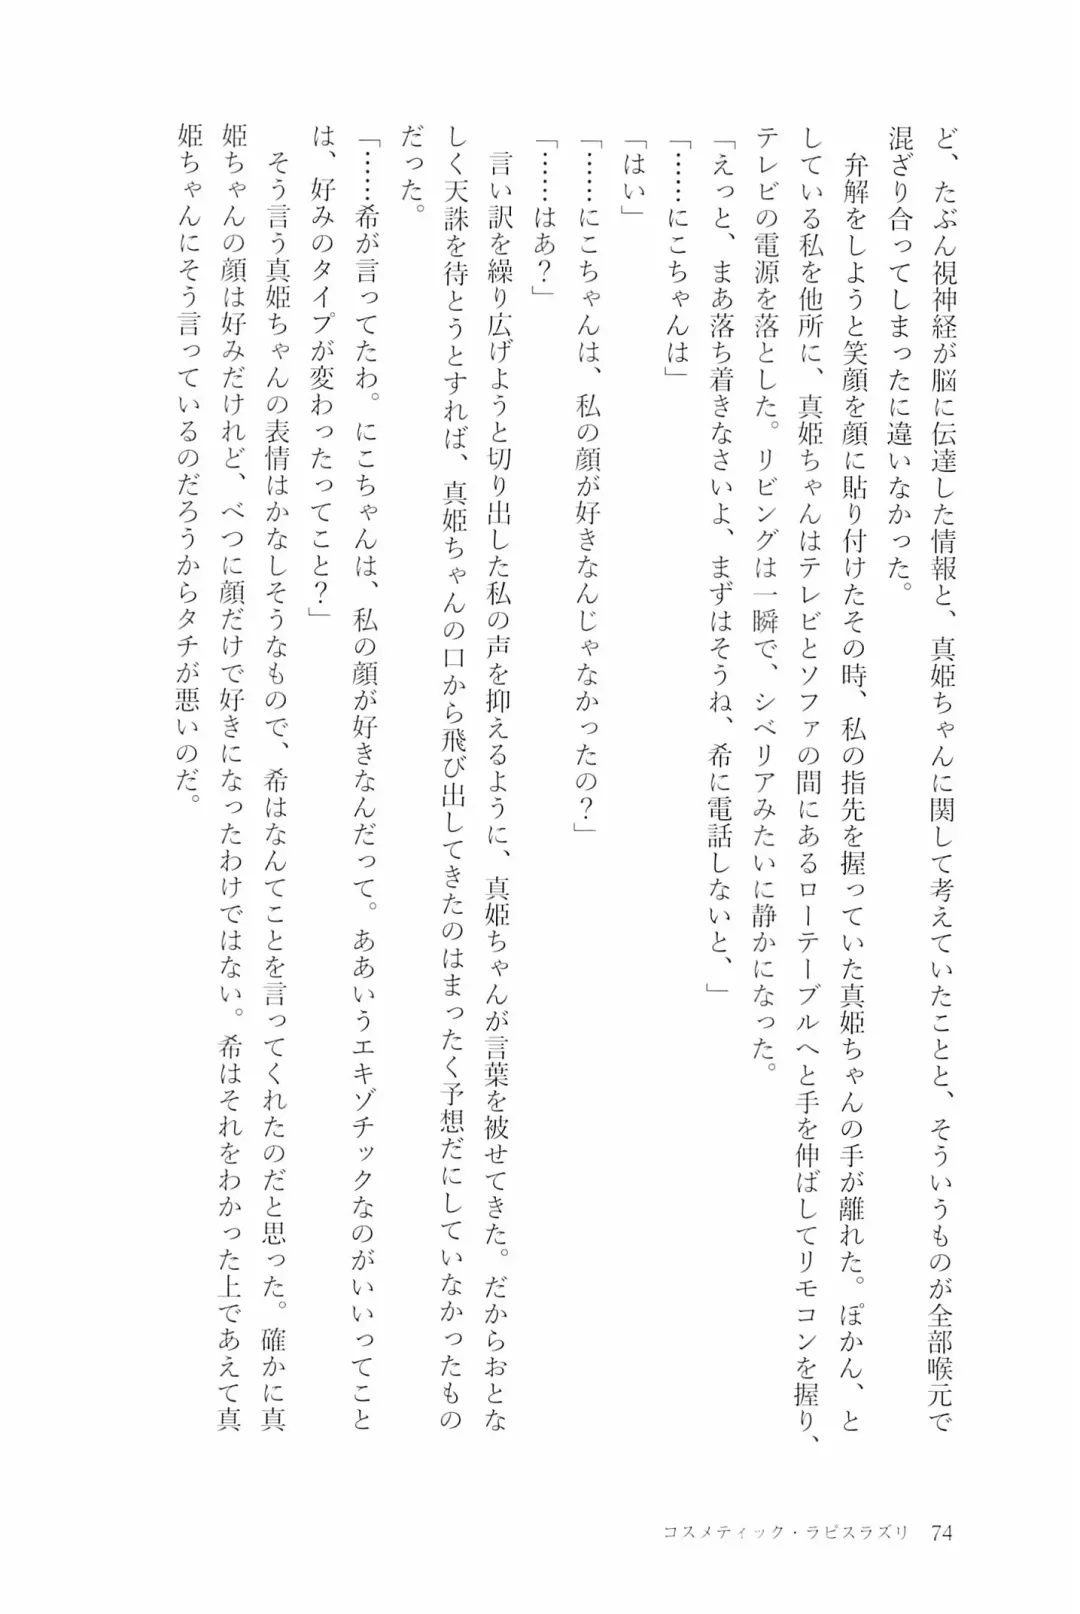 ど、たぶん視神経が脳に伝達した情報と、真姫ちゃんに関して考えていたことと、そういうものが全部喉元で
混ざり合ってしまったに違いなかった。
　弁解をしようと笑顔を顔に貼り付けたその時、私の指先を握っていた真姫ちゃんの手が離れた。ぽかん、と
している私を他所に、真姫ちゃんはテレビとソファの間にあるローテーブルへと手を伸ばしてリモコンを握り、
テレビの電源を落とした。リビングは一瞬で、シベリアみたいに静かになった。
「えっと、まあ落ち着きなさいよ、まずはそうね、希に電話しないと、」
「……にこちゃんは」
「はい」
「……にこちゃんは、私の顔が好きなんじゃなかったの？」
「……はあ？」
　言い訳を繰り広げようと切り出した私の声を抑えるように、真姫ちゃんが言葉を被せてきた。だからおとな
しく天誅を待とうとすれば、真姫ちゃんの口から飛び出してきたのはまったく予想だにしていなかったもの
だった。
「……希が言ってたわ。にこちゃんは、私の顔が好きなんだって。ああいうエキゾチックなのがいいってこと
は、好みのタイプが変わったってこと？」
　そう言う真姫ちゃんの表情はかなしそうなもので、希はなんてことを言ってくれたのだと思った。確かに真
姫ちゃんの顔は好みだけれど、べつに顔だけで好きになったわけではない。希はそれをわかった上であえて真
姫ちゃんにそう言っているのだろうからタチが悪いのだ。
コスメティック・ラピスラズリ 74